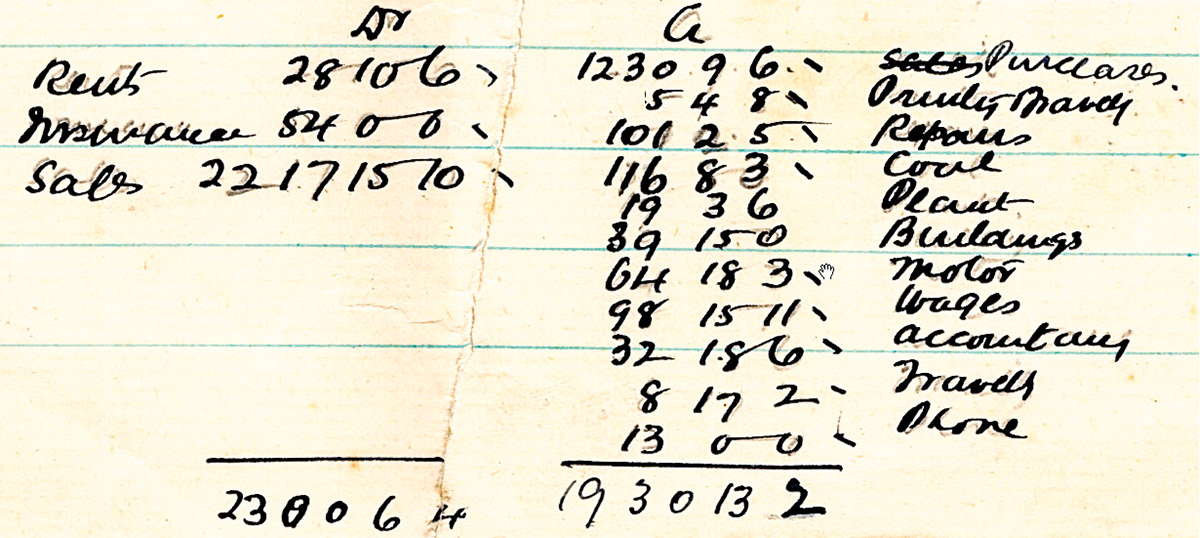 Dr Cr
Rent 28 10 6 1230 9 6 Purchases.
5 4 8
Insurance 54 0 0 101 2 5 Repairs
Sales 2217 15 10 116 8 3 Coal
19 3 6 Plant
39 15 0 Buildings
64 18 3 Motor
98 15 11 Wages
32 18 6 accountancy
8 17 2 Travels
13 0 0 Phone
2300 6 4 1930 13 2